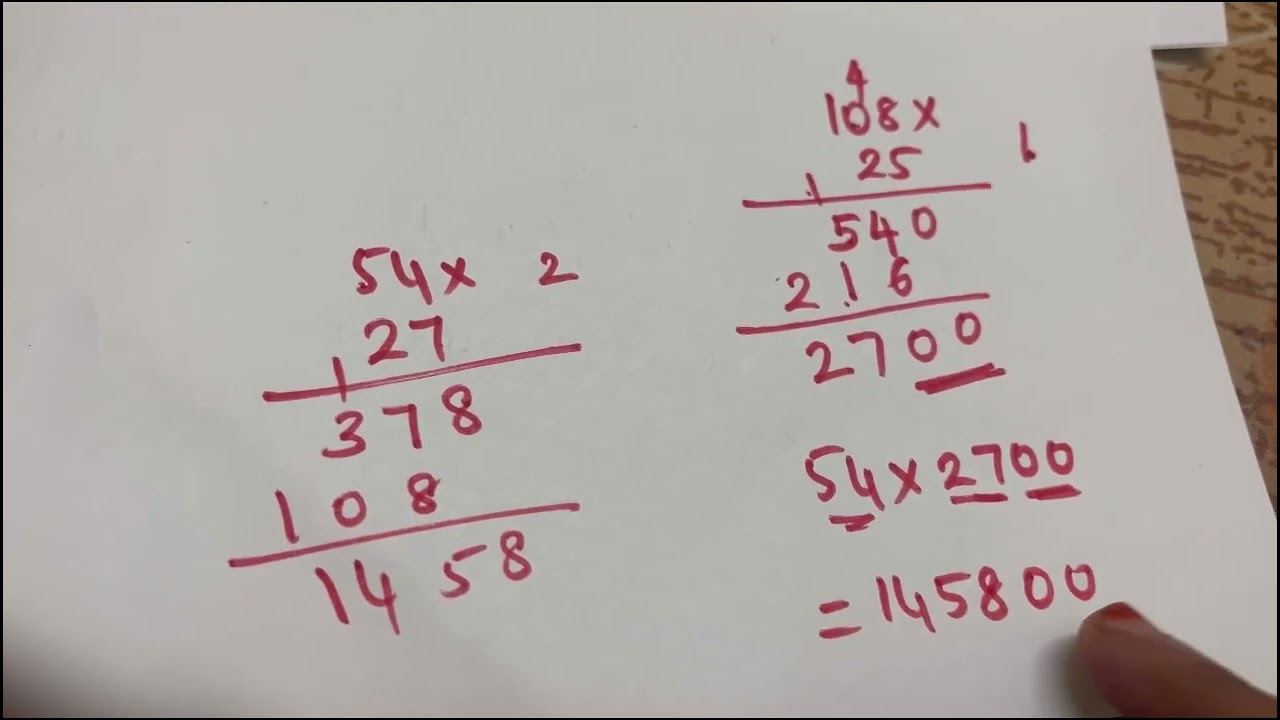 54× 2
27
1
378
108
1458
4
108× 1
25
1
540
216
2700
54×2700
=145800